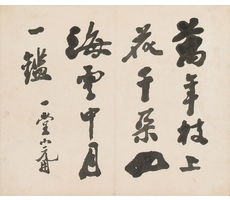 萬年枝上
花千朶四
海雲中月
一鑑
一堂